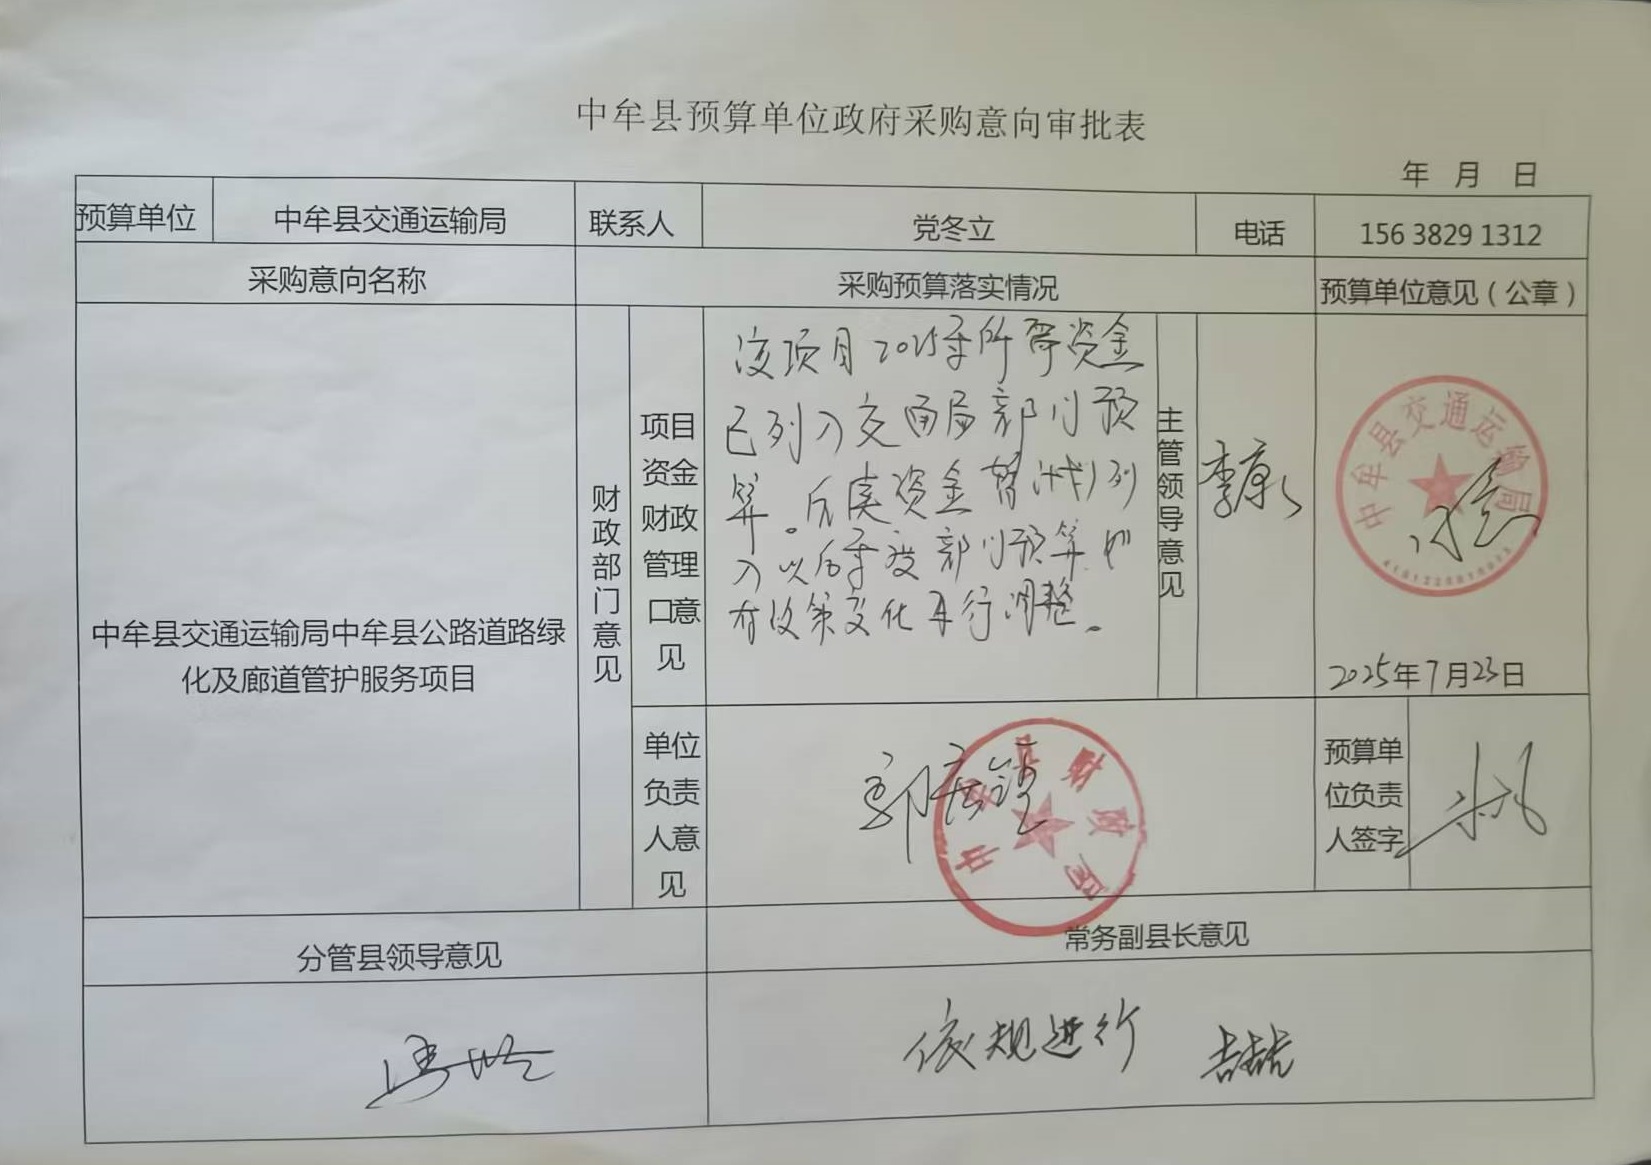 中牟县预算单位政府采购意向审批表
年 月 日
预算单位 中牟县交通运输局 联系人 党冬立 电话 156 3829 1312
采购意向名称 采购预算落实情况 预算单位意见（公章）
中牟县交通运输局中牟县公路道路绿
化及廊道管护服务项目
财政部门意见
项目
资金
财政
管理
口意
见
该项目2025年所需资金
已列入交通局部门预
算。后续资金暂计划列
入以后年度部门预算，如
有政策变化再行调整。
主管领导意见
李康
中牟县交通运输局
2025年7月23日
单位
负责
人意
见
中牟县财政局
预算单
位负责
人签字
分管县领导意见 常务副县长意见
依规进行